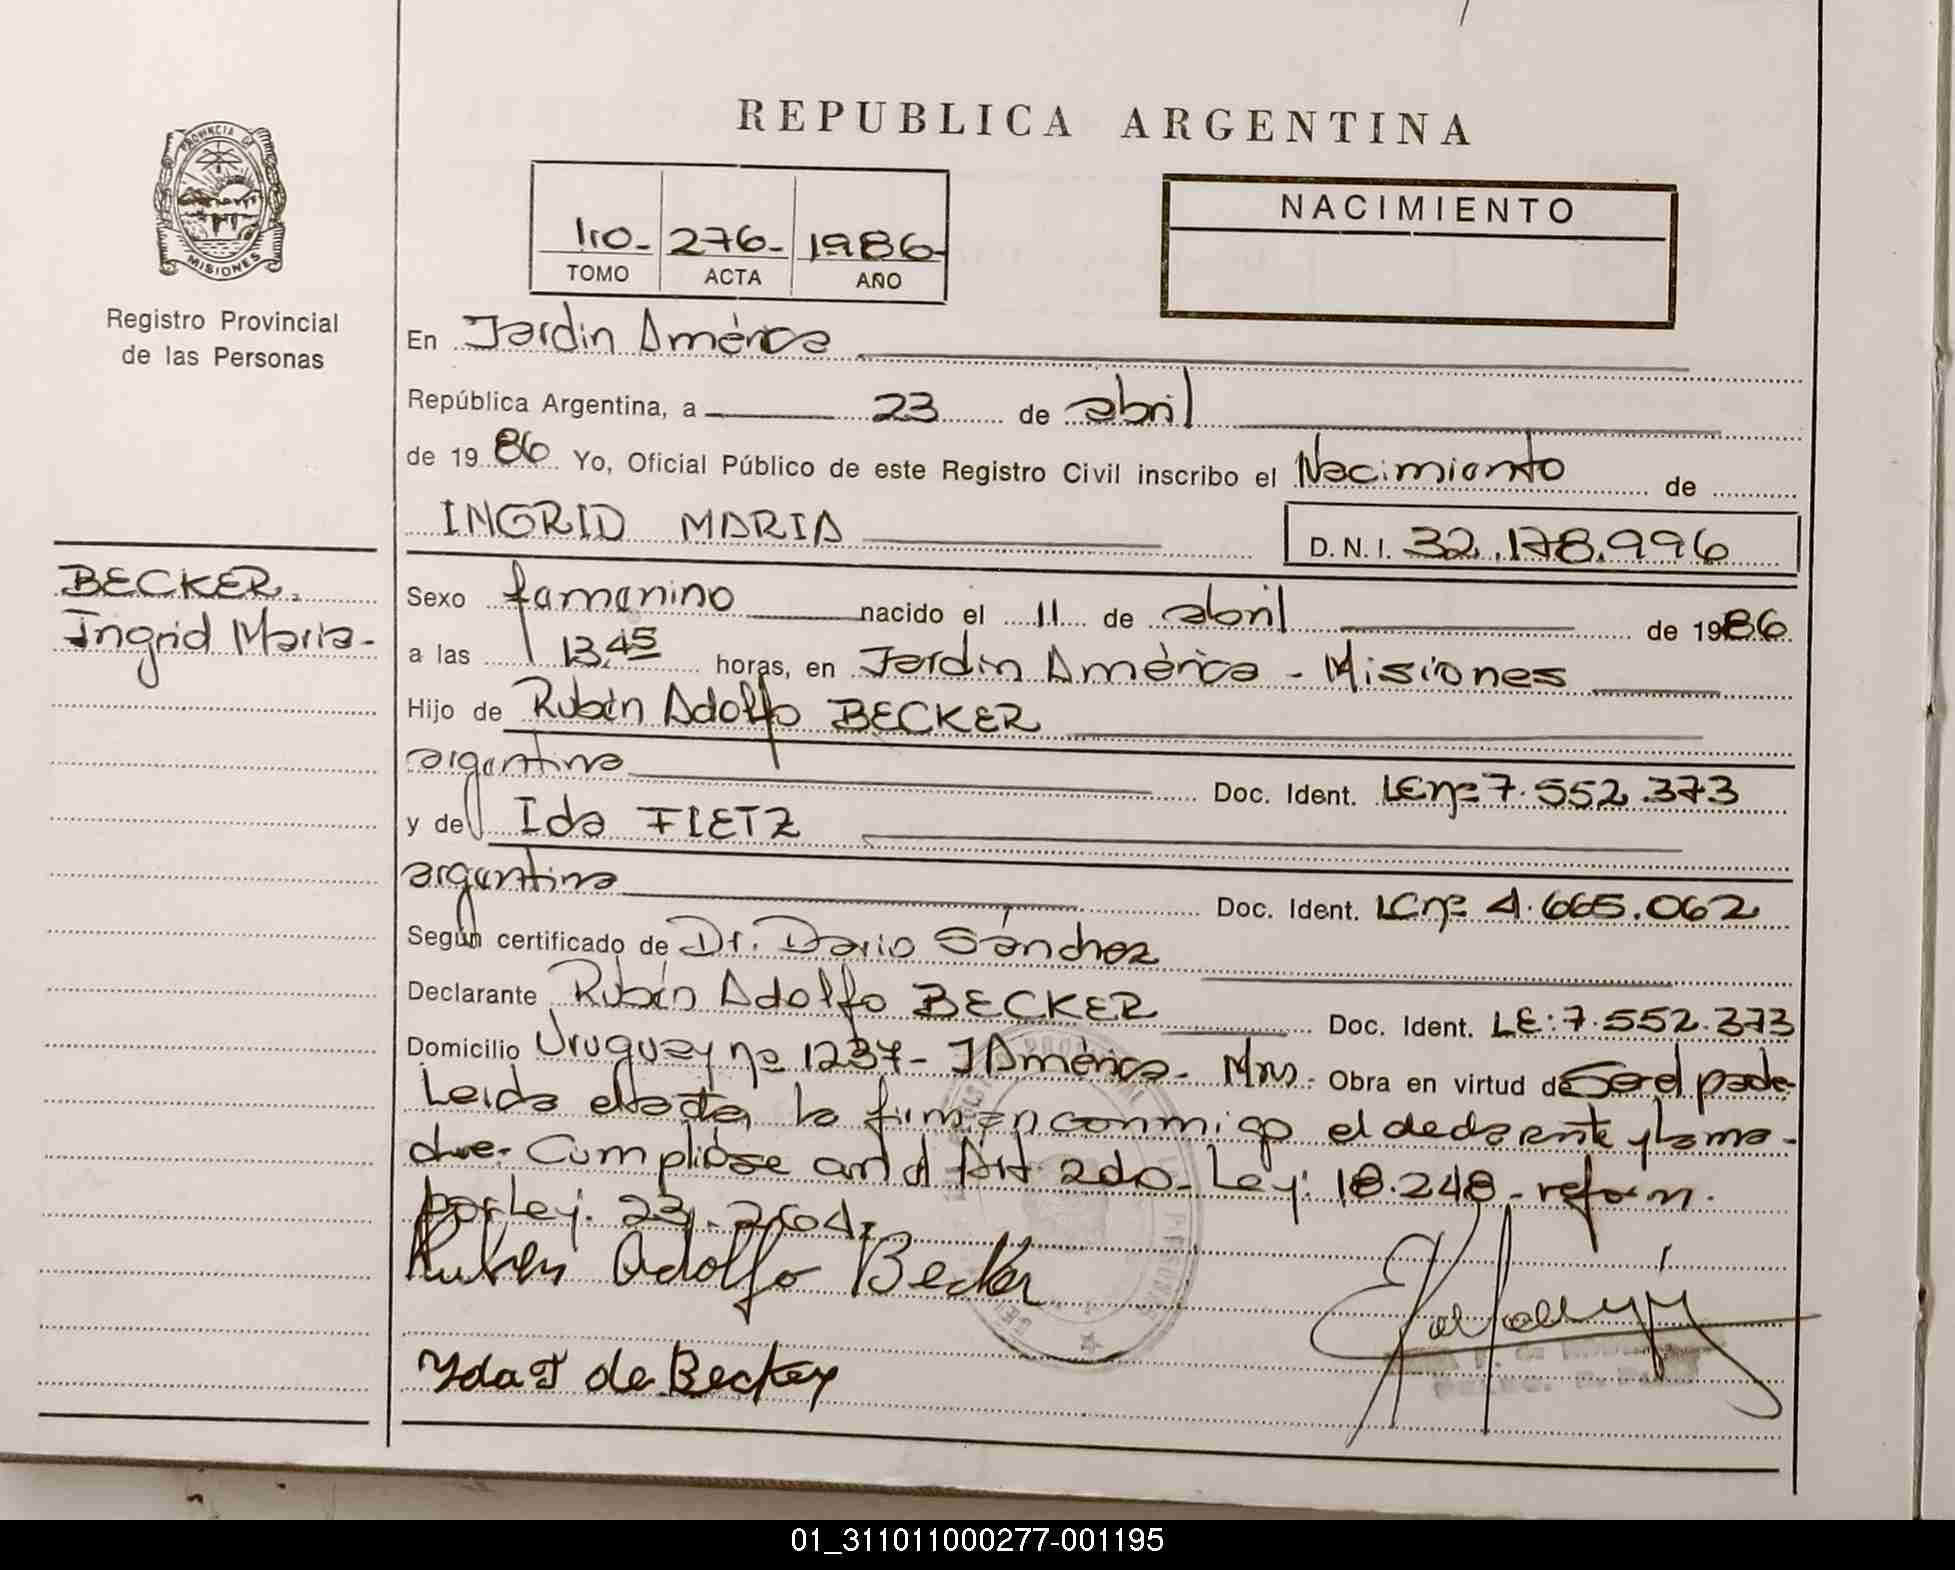 REPUBLICA ARGENTINA
PROVINCIA DE
MISIONES
Registro Provincial
de las Personas
1ro- 276- 1986-
TOMO ACTA AÑO
NACIMIENTO
En Jardin América
República Argentina, a 23 de abril
de 1986 Yo, Oficial Público de este Registro Civil inscribo el Nacimiento de
INGRID MARIA D.N.I. 32.178.996
BECKER,
Ingrid Maria-
Sexo femenino nacido el 11 de abril de 1986
a las 13,45 horas, en Jardin América - Misiones
Hijo de Rubén Adolfo BECKER
argentina Doc. Ident. LEnº 7.552.373
y de Ida FIETZ
argentina Doc. Ident. LCnº 4.665.062
Según certificado de Dr. Dario Sánchez
Declarante Rubén Adolfo BECKER Doc. Ident. LE:7.552.373
Domicilio Uruguay nº 1237- J América- Mns. Obra en virtud de Ser el padre-
Leida el acta, la firman conmigo el declarante y la ma-
dre- Cumpliose con el Art 2do- Ley: 18.248- reform.
por Ley. 23.264.
Ruben Adolfo Becker
Yda F de Becker
01_311011000277-001195